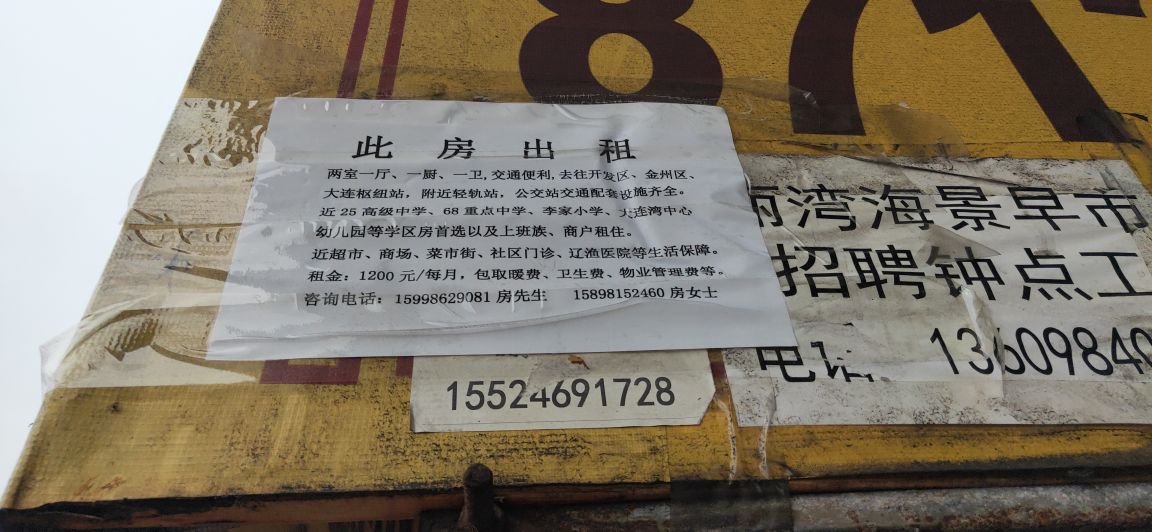 87
此房出租
两室一厅、一厨、一卫,交通便利,去往开发区、金州区、
大连枢纽站,附近轻轨站,公交站交通配套设施齐全。
近25高级中学、68重点中学、李家小学、大连湾中心
幼儿园等学区房首选以及上班族、商户租住。
近超市、商场、菜市街、社区门诊、辽渔医院等生活保障。
租金:1200元/每月,包取暖费、卫生费、物业管理费等。
咨询电话:15998629081房先生 15898152460房女士
15524691728
湾海景早市
招聘钟点工
电话 13609840